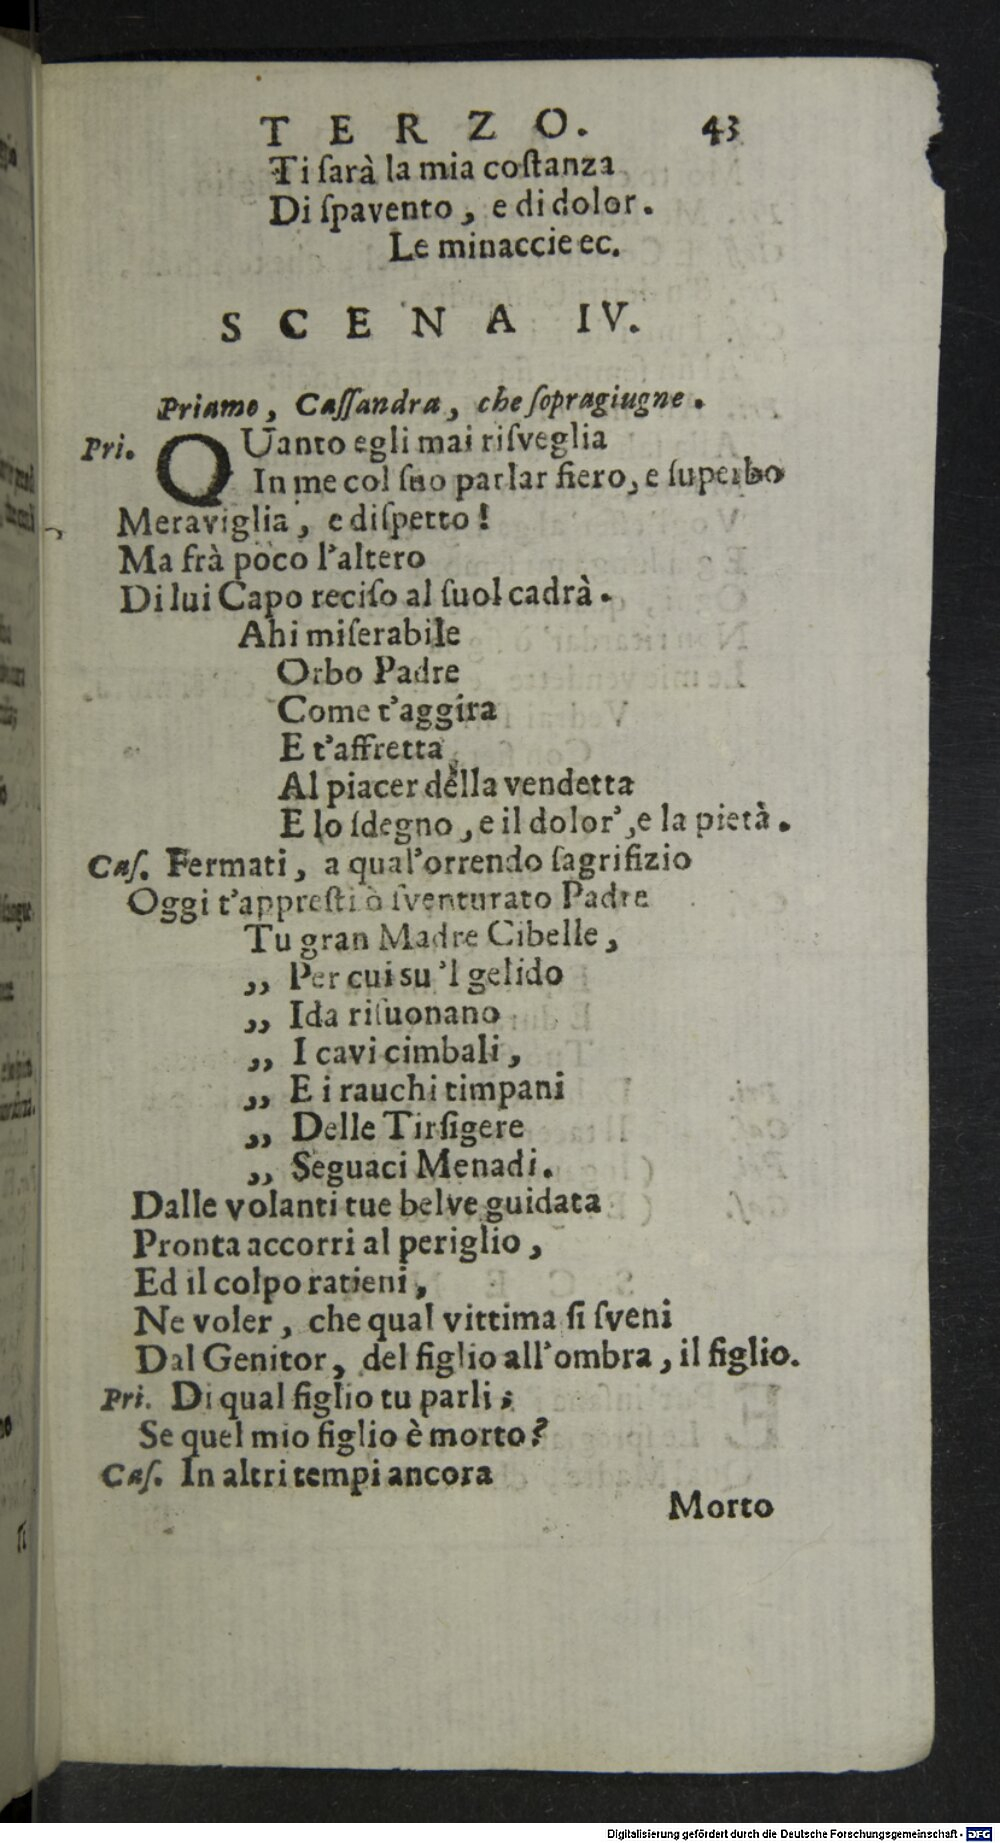 TERZO. 43
Ti ſarà la mia coſtanza
Di ſpavento, e di dolor.
Le minaccie ec.
SCENA IV.
Priamo, Caſſandra, che ſopragiugne.
Pri. QUanto egli mai riſveglia
In me col ſuo parlar fiero, e ſuperbo
Meraviglia, e diſpetto!
Ma frà poco l'altero
Di lui Capo reciſo al ſuol cadrà.
Ahi miſerabile
Orbo Padre
Come t'aggira
E t'affretta
Al piacer della vendetta
E lo ſdegno, e il dolor', e la pietà.
Caſ. Fermati, a qual'orrendo ſagrifizio
Oggi t'appreſti ò ſventurato Padre
Tu gran Madre Cibelle,
,, Per cui su 'l gelido
,, Ida riſuonano
,, I cavi cimbali,
,, E i rauchi timpani
,, Delle Tirſigere
,, Seguaci Menadi.
Dalle volanti tue belve guidata
Pronta accorri al periglio,
Ed il colpo ratieni,
Ne voler, che qual vittima ſi ſveni
Dal Genitor, del figlio all'ombra, il figlio.
Pri. Di qual figlio tu parli;
Se quel mio figlio è morto?
Caſ. In altri tempi ancora
Morto
Digitalisierung gefördert durch die Deutsche Forschungsgemeinschaft - DFG